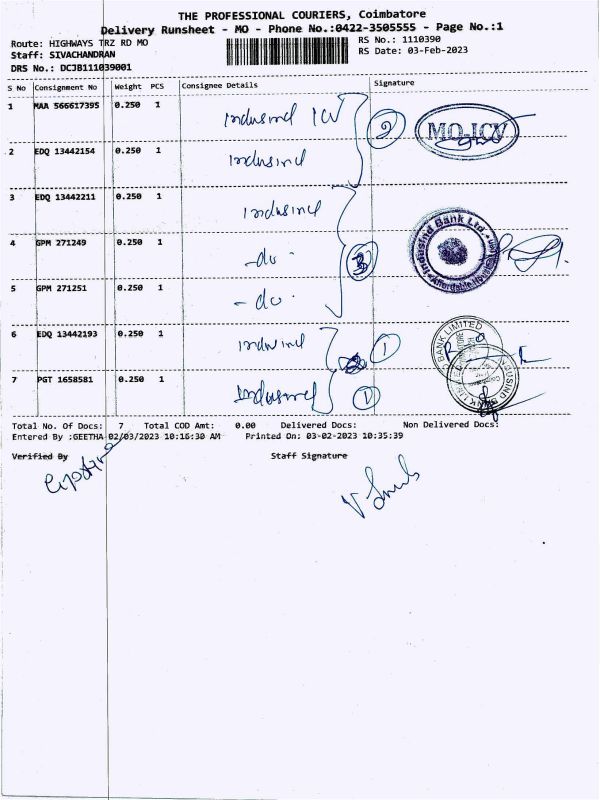 THE PROFESSIONAL COURIERS, Coimbatore
Delivery Runsheet - MO - Phone No.:0422-3505555 - Page No.:1
Route: HIGHWAYS TRZ RD MO
RS No.: 1110390
Staff: SIVACHANDRAN
RS Date: 03-Feb-2023
DRS No.: DCJB111039001
S No Consignment No Weight PCS Consignee Details Signature
1 MAA 566617395 0.250 1 Indusind ICV 2 MO-ICV
2 EDQ 13442154 0.250 1 Indusind
3 EDQ 13442211 0.250 1 Indusind
IndusInd Bank Ltd.
4 GPM 271249 0.250 1 -do- 3
5 GPM 271251 0.250 1 -do-
6 EDQ 13442193 0.250 1 Indusind 1
BANK LIMITED
7 PGT 1658581 0.250 1 Indusind 1
Total No. Of Docs: 7 Total COD Amt: 0.00 Delivered Docs: Non Delivered Docs:
Entered By :GEETHA 02/03/2023 10:16:30 AM Printed On: 03-02-2023 10:35:39
Verified By Staff Signature